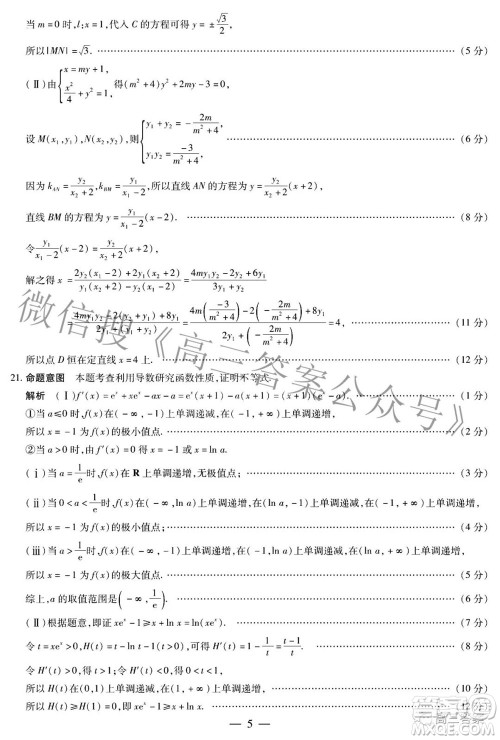 当 m=0 时,l:x=1,代入 C 的方程可得 y=±√3/2,
所以|MN|=√3. (5 分)
(Ⅱ)由{x=my+1, x²/4+y²=1, 得(m²+4)y²+2my-3=0,
设 M(x₁,y₁),N(x₂,y₂),则{y₁+y₂=-2m/(m²+4), y₁y₂=-3/(m²+4), (6 分)
因为 k_AN=y₂/(x₂+2),k_BM=y₁/(x₁-2),所以直线 AN 的方程为 y=y₂/(x₂+2)(x+2),
直线 BM 的方程为 y=y₁/(x₁-2)(x-2). (8 分)
令 y₁/(x₁-2)(x-2)=y₂/(x₂+2)(x+2),
解之得 x=[2y₂(x₁-2)+2y₁(x₂+2)]/[y₁(x₂+2)-y₂(x₁-2)]=(4my₁y₂-2y₂+6y₁)/(y₂+3y₁)
=[4my₁y₂-2(y₂+y₁)+8y₁]/[(y₂+y₁)+2y₁]=[4m(-3/(m²+4))-2(-2m/(m²+4))+8y₁]/[2y₁+(-2m/(m²+4))]=4, (11 分)
所以点 D 恒在定直线 x=4 上. (12 分)
21. 命题意图 本题考查利用导数研究函数性质,证明不等式.
解析 (Ⅰ)f′(x)=eˣ+xeˣ-ax-a=eˣ(x+1)-a(x+1)=(x+1)(eˣ-a). (1 分)
①当 a≤0 时,f(x)在(-∞,-1)上单调递减,在(-1,+∞)上单调递增,
所以 x=-1 为 f(x)的极小值点. (2 分)
②当 a>0 时,由 f′(x)=0 得 x=-1 或 x=ln a.
(ⅰ)当 a=1/e 时,f(x)在 R 上单调递增,无极值点; (3 分)
(ⅱ)当 0<a<1/e 时,f(x)在(-∞,ln a)上单调递增,在(ln a,-1)上单调递减,在(-1,+∞)上单调递增,
所以 x=-1 为 f(x)的极小值点; (4 分)
(ⅲ)当 a>1/e 时,f(x)在(-∞,-1)上单调递增,在(-1,ln a)上单调递减,在(ln a,+∞)上单调递增,
所以 x=-1 为 f(x)的极大值点. (5 分)
综上,a 的取值范围是(-∞,1/e). (6 分)
(Ⅱ)根据题意,即证 xeˣ-1≥x+ln x=ln(xeˣ). (7 分)
令 t=xeˣ>0,H(t)=t-ln t-1(t>0),可得 H′(t)=1-1/t=(t-1)/t. (8 分)
令 H′(t)>0,得 t>1;令 H′(t)<0,得 0<t<1,
所以 H(t)在(0,1)上单调递减,在(1,+∞)上单调递增, (10 分)
所以 H(t)≥H(1)=0,即原不等式成立. (12 分)
— 5 —
微信搜《高三答案公众号》